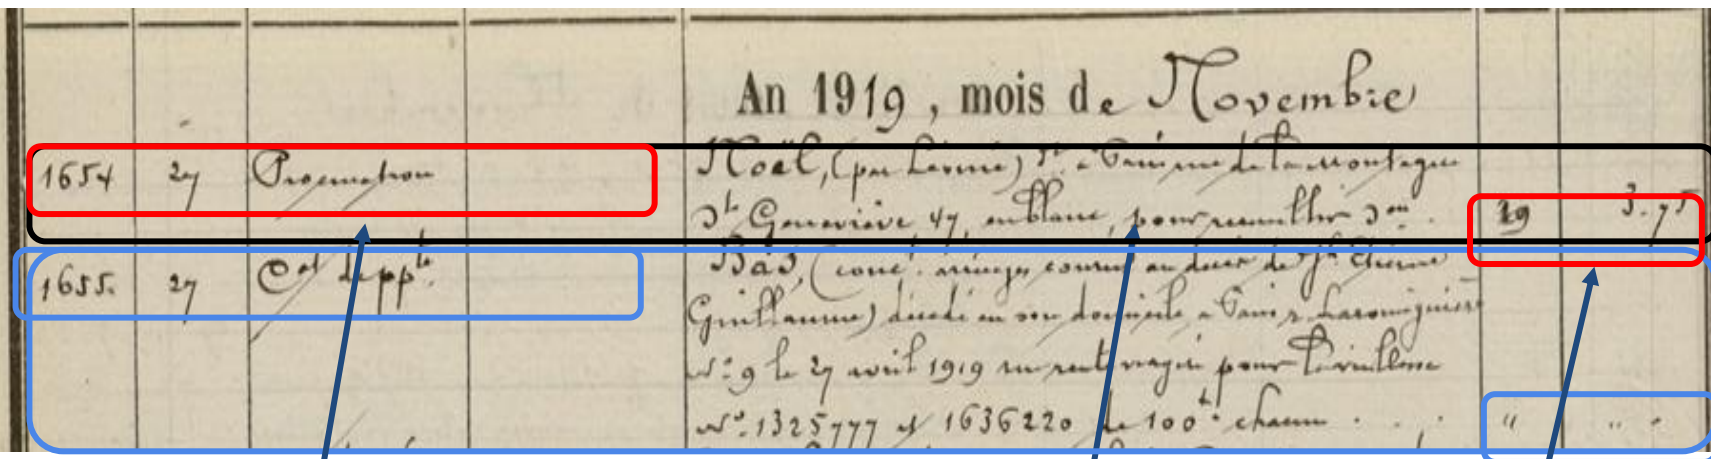 An 1919, mois de Novembre
1654 27 Procuration Noël, (par Léonie) dt à Paris rue de la Montagne
Ste Geneviève 47, en blanc, pour recueillir don . 29 3.75
1655. 27 Cat de ppté Bas, (conc. arrérages courus au décès de Jn Etienne
Guillaume) décédé en son domicile à Paris r. Laromiguière
No 9 le 27 avril 1919 sur rente viagère pour la vieillesse
Nos 1325777 et 1636220 de 100f. chacun . . . " " "